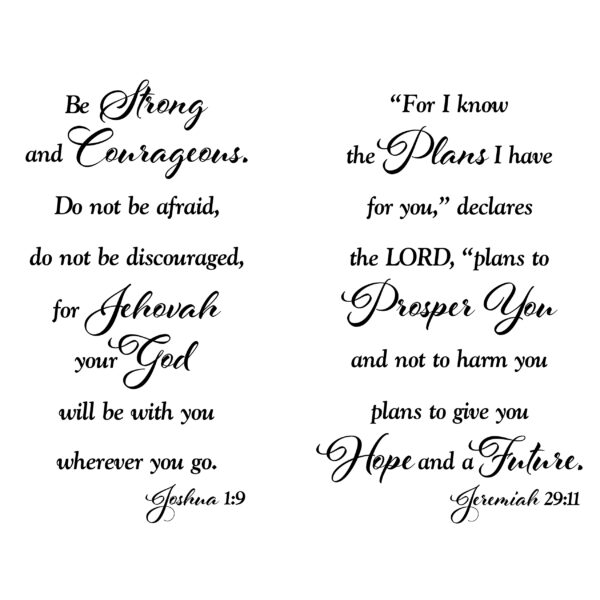 Be Strong
and Courageous.
Do not be afraid,
do not be discouraged,
for Jehovah
your God
will be with you
wherever you go.
Joshua 1:9
“For I know
the Plans I have
for you,” declares
the LORD, “plans to
Prosper You
and not to harm you
plans to give you
Hope and a Future.
Jeremiah 29:11